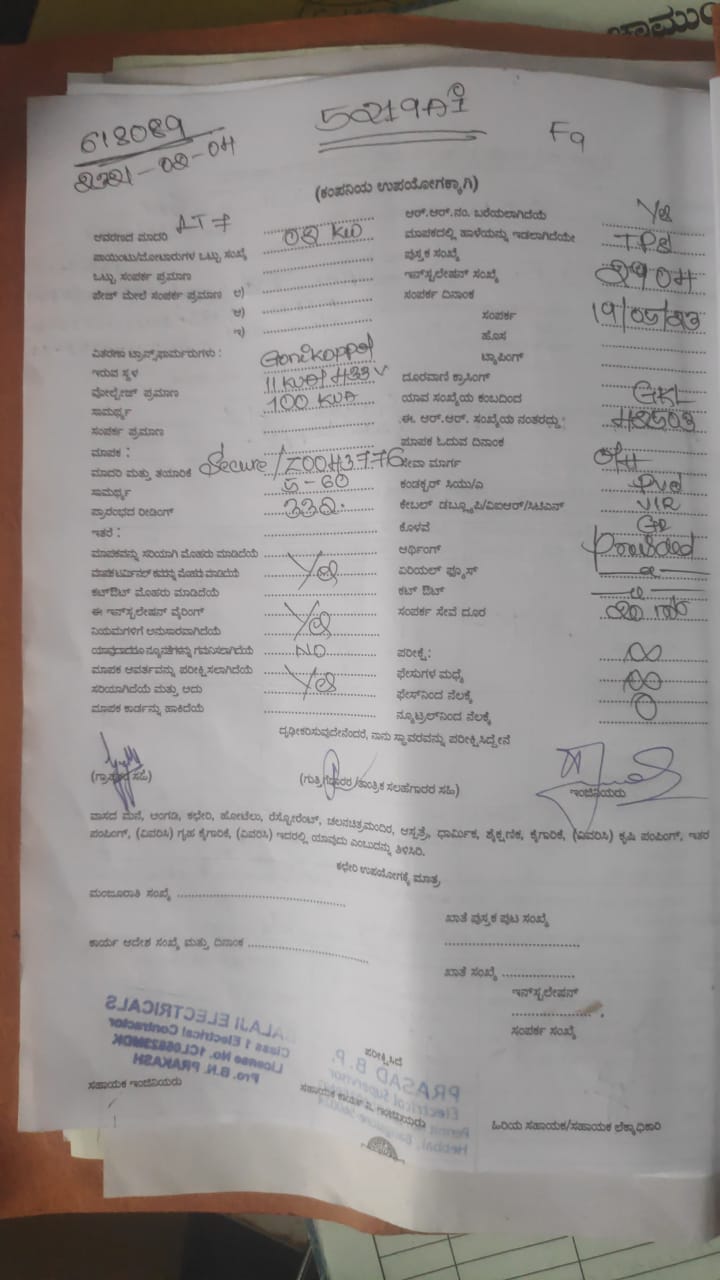 ಚಾಮುಂ
618089
50219AI
F9
(ಕಂಪನಿಯ ಉಪಯೋಗಕ್ಕಾಗಿ)
ಆವರಣದ ಮಾದರಿ LT 7
ಆರ್.ಆರ್.ನಂ. ಬರೆಯಲಾಗಿದೆಯೆ Yes
ಪಾಯಿಂಟು/ಮೋಟಾರುಗಳ ಒಟ್ಟು ಸಂಖ್ಯೆ 02 KW
ಮಾಪಕದಲ್ಲಿ ಹಾಳೆಯನ್ನು ಇಡಲಾಗಿದೆಯೇ
ಒಟ್ಟು ಸಂಪರ್ಕ ಪ್ರಮಾಣ
ಪುಸ್ತಕ ಸಂಖ್ಯೆ
ಪೇಜ್ ಮೇಲೆ ಸಂಪರ್ಕ ಪ್ರಮಾಣ ಅ)
ಇನ್‌ಸ್ಟಲೇಷನ್ ಸಂಖ್ಯೆ
ಆ)
ಸಂಪರ್ಕ ದಿನಾಂಕ
ಇ)
ಸಂಪರ್ಕ
ಹೊಸ
ವಿತರಣಾ ಟ್ರಾನ್ಸ್‌ಫಾರ್ಮರುಗಳು :
ಟ್ಯಾಪಿಂಗ್
ಇರುವ ಸ್ಥಳ Gonikoppal
ದೂರವಾಣಿ ಕ್ರಾಸಿಂಗ್
ವೋಲ್ಟೇಜ್ ಪ್ರಮಾಣ 11 KVA/433 V
ಯಾವ ಸಂಖ್ಯೆಯ ಕಂಬದಿಂದ GKL
ಸಾಮರ್ಥ್ಯ 100 KVA
ಈ. ಆರ್.ಆರ್. ಸಂಖ್ಯೆಯ ನಂತರದ್ದು : 42503
ಸಂಪರ್ಕ ಪ್ರಮಾಣ
ಮಾಪಕ ಓದುವ ದಿನಾಂಕ
ಮಾಪಕ :
ಸೇವಾ ಮಾರ್ಗ O/H
ಮಾದರಿ ಮತ್ತು ತಯಾರಿಕೆ Secure/Z0043776
ಕಂಡಕ್ಟರ್ ಸಿಯು/ಎ
ಸಾಮರ್ಥ್ಯ 5-60
ಕೇಬಲ್ ಡಬ್ಲ್ಯೂಪಿ/ವಿಐಆರ್/ಸಿಟಿಎಸ್ VIR
ಪ್ರಾರಂಭದ ರೀಡಿಂಗ್ 332.
ಕೊಳವೆ
ಇತರೆ :
ಅರ್ಥಿಂಗ್ Provided
ಮಾಪಕವನ್ನು ಸರಿಯಾಗಿ ಮೊಹರು ಮಾಡಿದೆಯೆ
ಏರಿಯಲ್ ಫ್ಯೂಸ್
ಮಾಪಕ ಟರ್ಮಿನಲ್ ಕವರನ್ನು ಮೊಹರು ಮಾಡಿದೆಯೆ Yes
ಕಟ್ ಔಟ್
ಕಟ್‌ಔಟ್ ಮೊಹರು ಮಾಡಿದೆಯೆ
ಸಂಪರ್ಕ ಸೇವೆ ದೂರ
ಈ ಇನ್‌ಸ್ಟಲೇಷನ್ ವೈರಿಂಗ್
ನಿಯಮಗಳಿಗೆ ಅನುಸಾರವಾಗಿದೆಯೆ Yes
ಯಾವುದಾದರೂ ನ್ಯೂನತೆಗಳನ್ನು ಗಮನಿಸಲಾಗಿದೆಯೆ NO
ಪರೀಕ್ಷೆ : ∞
ಮಾಪಕ ಆವರ್ತವನ್ನು ಪರೀಕ್ಷಿಸಲಾಗಿದೆಯೆ
ಫೇಸುಗಳ ಮಧ್ಯೆ ∞
ಸರಿಯಾಗಿದೆಯೆ ಮತ್ತು ಅದು Yes
ಫೇಸ್‌ನಿಂದ ನೆಲಕ್ಕೆ 0
ಮಾಪಕ ಕಾರ್ಡನ್ನು ಹಾಕಿದೆಯೆ
ನ್ಯೂಟ್ರಲ್‌ನಿಂದ ನೆಲಕ್ಕೆ
ದೃಢೀಕರಿಸುವುದೇನೆಂದರೆ, ನಾನು ಸ್ಥಾವರವನ್ನು ಪರೀಕ್ಷಿಸಿದ್ದೇನೆ
(ಗ್ರಾಹಕರ ಸಹಿ)
(ಗುತ್ತಿಗೆದಾರರ/ತಾಂತ್ರಿಕ ಸಲಹೆಗಾರರ ಸಹಿ)
ಇಂಜಿನಿಯರು
ವಾಸದ ಮನೆ, ಅಂಗಡಿ, ಕಛೇರಿ, ಹೋಟೆಲು, ರೆಸ್ಟೋರೆಂಟ್, ಚಲನಚಿತ್ರಮಂದಿರ, ಆಸ್ಪತ್ರೆ, ಧಾರ್ಮಿಕ, ಶೈಕ್ಷಣಿಕ, ಕೈಗಾರಿಕೆ, (ವಿವರಿಸಿ) ಕೃಷಿ ಪಂಪಿಂಗ್, ಇತರ
ಪಂಪಿಂಗ್, (ವಿವರಿಸಿ) ಗೃಹ ಕೈಗಾರಿಕೆ, (ವಿವರಿಸಿ) ಇದರಲ್ಲಿ ಯಾವುದು ಎಂಬುದನ್ನು ತಿಳಿಸಿರಿ.
ಕಛೇರಿ ಉಪಯೋಗಕ್ಕೆ ಮಾತ್ರ
ಮಂಜೂರಾತಿ ಸಂಖ್ಯೆ
ಖಾತೆ ಪುಸ್ತಕ ಪುಟ ಸಂಖ್ಯೆ
ಕಾರ್ಯ ಆದೇಶ ಸಂಖ್ಯೆ ಮತ್ತು ದಿನಾಂಕ
ಖಾತೆ ಸಂಖ್ಯೆ
ಇನ್‌ಸ್ಟಲೇಷನ್
ಸಂಪರ್ಕ ಸಂಖ್ಯೆ
BALAJI ELECTRICALS
Class 1 Electrical Contractor
Pro. B.N. PRAKASH
ಪರೀಕ್ಷಿಸಿದ
PRASAD B.P.
Electrical Supervisor
ಸಹಾಯಕ ಇಂಜಿನಿಯರು
ಸಹಾಯಕ ಕಾರ್ಯ ನಿ. ಇಂಜಿನಿಯರು
ಹಿರಿಯ ಸಹಾಯಕ/ಸಹಾಯಕ ಲೆಕ್ಕಾಧಿಕಾರಿ